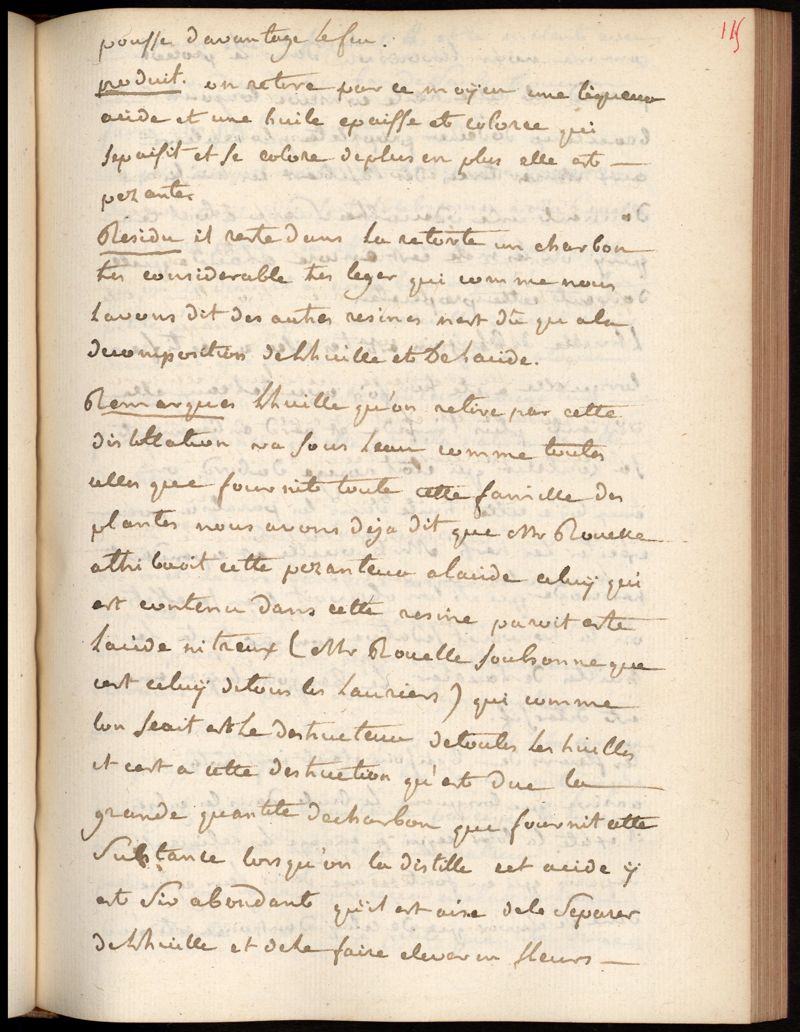 115
pousse davantage le feu.
produit. on retire par ce moyen une liqueur
acide et une huile epaisse et coloree qui
sepaisit et se colore de plus en plus elle est
pezante.
Residu il reste dans la retorte un charbon
tres considerable tres leger qui comme nous
lavons dit des autres resines nest dû qu a la
decomposition de lhuille et de lacide.
Remarques lhuille qu'on retire par cette
distillation va sous leau comme toutes
celles que fournit toute cette famille des
plantes nous avons deja dit que Mr Rouelle
attribuoit cette pezanteur a lacide celuy qui
est contenu dans cette resine paroit estre
lacide nitreux (Mr Rouelle soubsonne que
cest celuy de tous les lauriers) qui comme
lon scait est le destructeur de toutes les huilles
et cest a cette destruction qu'est due la
grande quantité de charbon que fournit cette
substance lorsqu'on la distille cet acide ÿ
est sis abondant qu'il est aisé de le separer
de lhuille et de le faire elever en fleurs